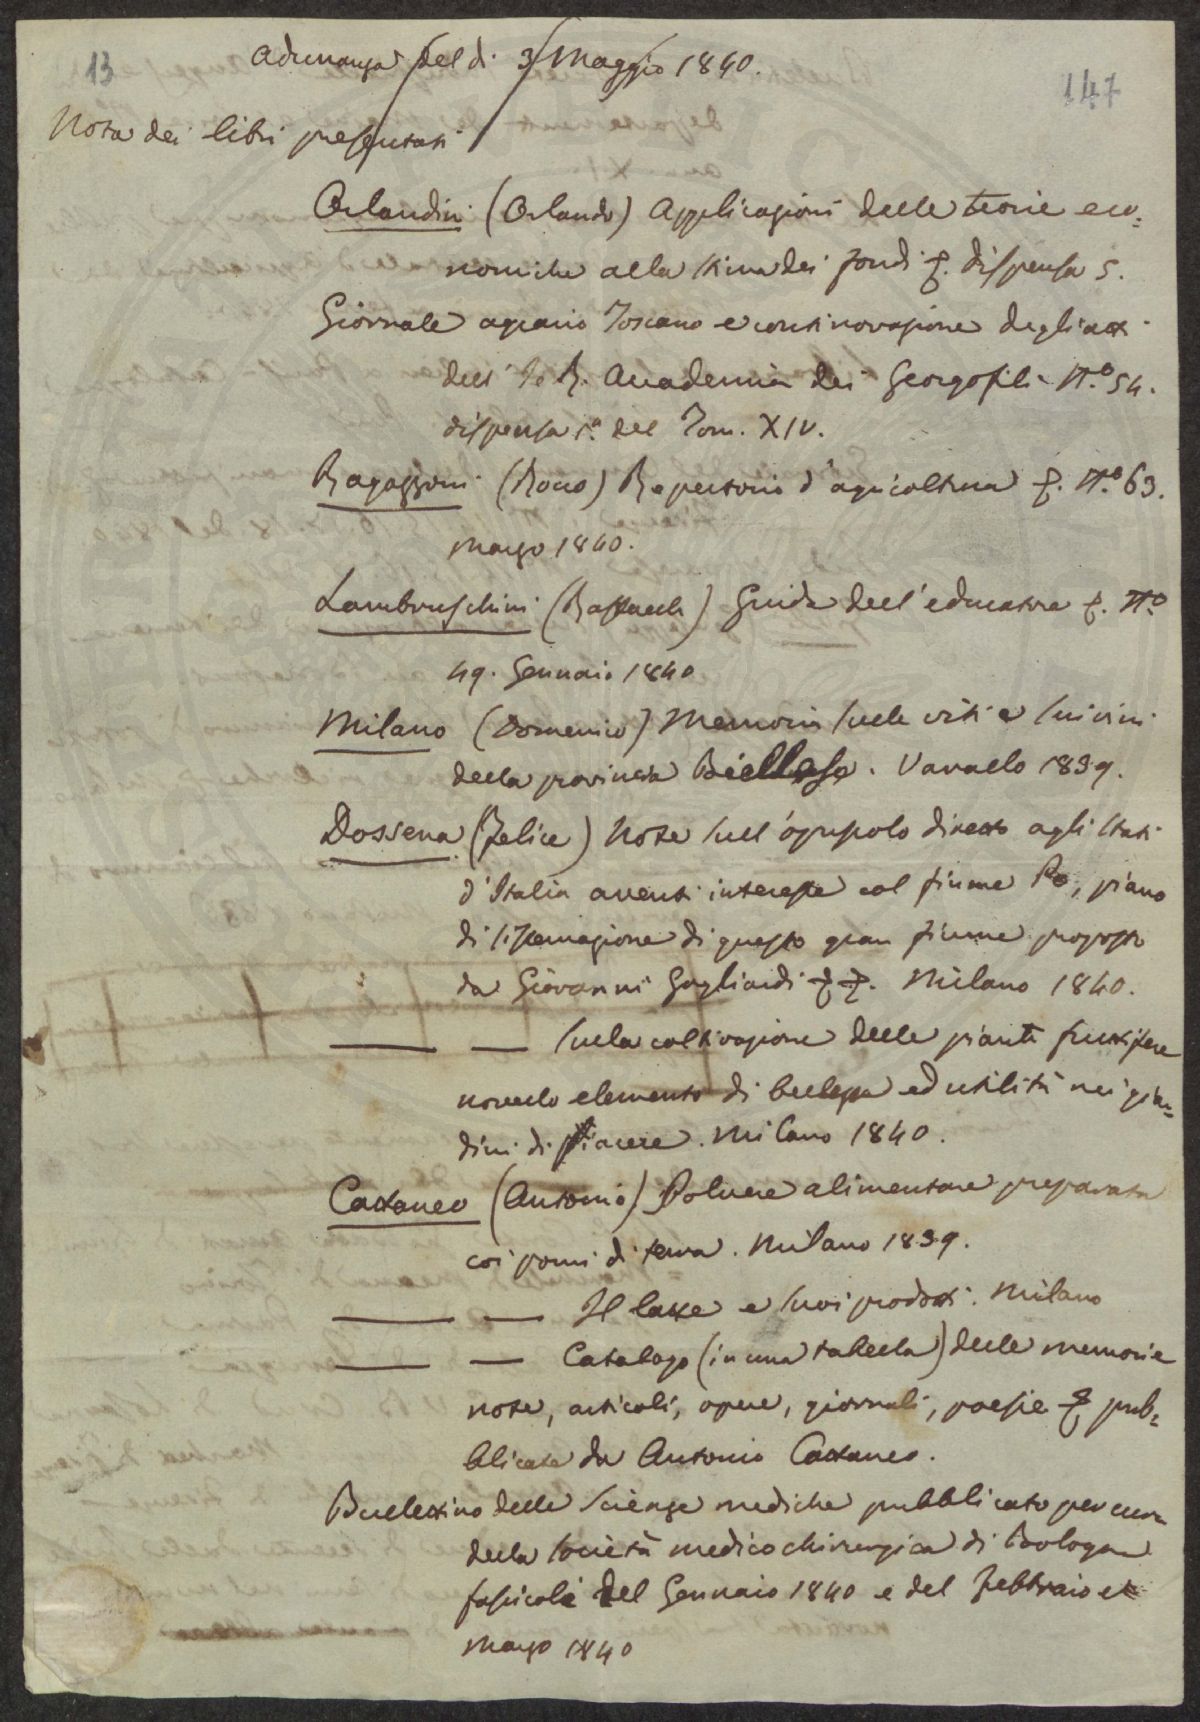 13
Adunanza del dì 3 Maggio 1840.
147
Nota dei libri presentati
Orlandini (Orlando) Applicazioni delle teorie eco=
nomiche alla stima dei fondi &. dispensa 5.
Giornale agrario Toscano e continovazione degli atti
dell' I. e R. Accademia dei Georgofili N.o 54.
dispensa 1.a del Tom. XIV.
Ragazzoni (Rocco) Repertorio d'agricoltura &. N.o 63.
marzo 1840.
Lambruschini (Raffaele) Guida dell'educatore &. N.o
49. Gennaio 1840
Milano (Domenico) Memoria sulle viti e sui vini
della provincia Biellese. Varallo 1839.
Dossena (Felice) Note sull'opuscolo diretto agli Stati
d'Italia aventi interesse col fiume Po, piano
di sistemazione di questo gran fiume proposto
da Giovanni Gagliardi &&. Milano 1840.
— — sulla coltivazione delle piante fruttifere
novello elemento di bellezza ed utilità nei giar=
dini di piacere. Milano 1840.
Cattaneo (Antonio) Polvere alimentare preparata
coi pomi di terra. Milano 1839.
— — Il latte e suoi prodotti. Milano
— — Catalogo (in una tabella) delle memorie
note, articoli, opere, giornali, poesie & pub=
blicate da Antonio Cattaneo.
Bullettino delle Scienze mediche pubblicato per cura
della Società medico chirurgica di Bologna
fascicoli del Gennaio 1840 e del Febbraio e
Marzo 1840